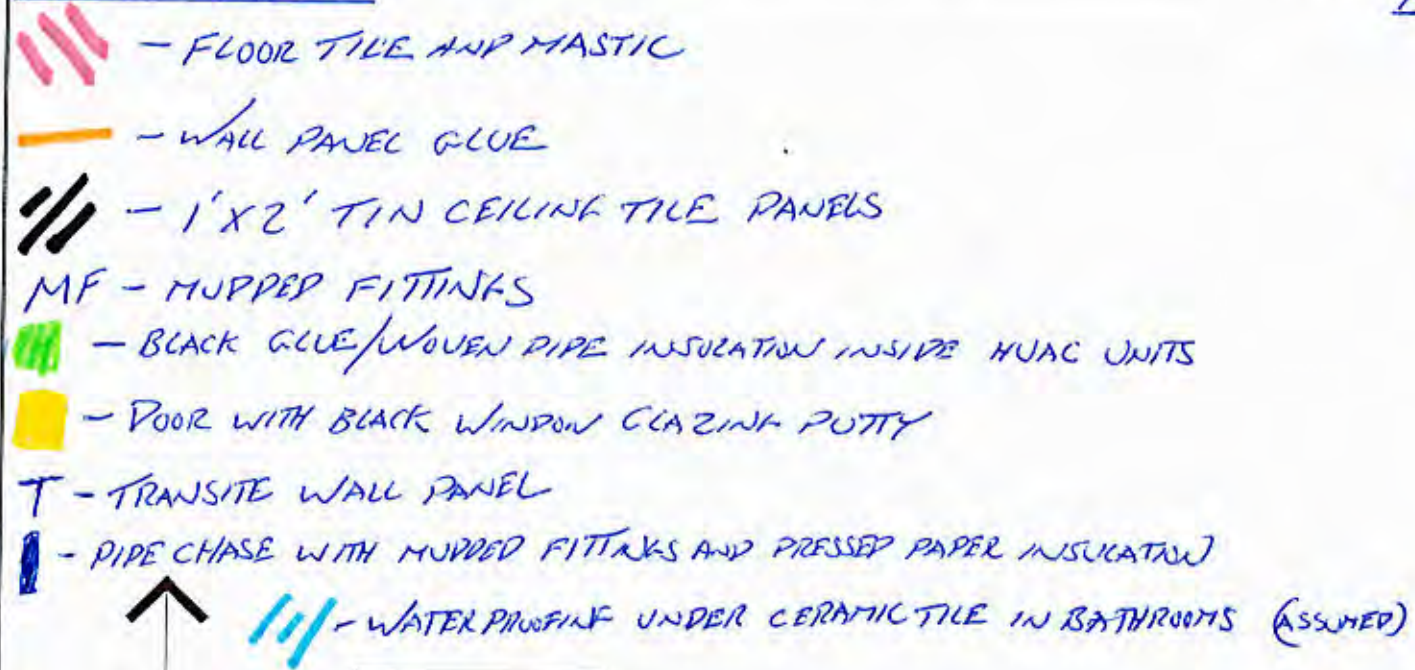 - FLOOR TILE AND MASTIC
- WALL PANEL GLUE
- 1'X2' TIN CEILING TILE PANELS
MF - MUDDED FITTINGS
- BLACK GLUE/WOVEN PIPE INSULATION INSIDE HVAC UNITS
- DOOR WITH BLACK WINDOW GLAZING PUTTY
T - TRANSITE WALL PANEL
- PIPE CHASE WITH MUDDED FITTINGS AND PRESSED PAPER INSULATION
- WATERPROOFING UNDER CERAMIC TILE IN BATHROOMS (ASSUMED)